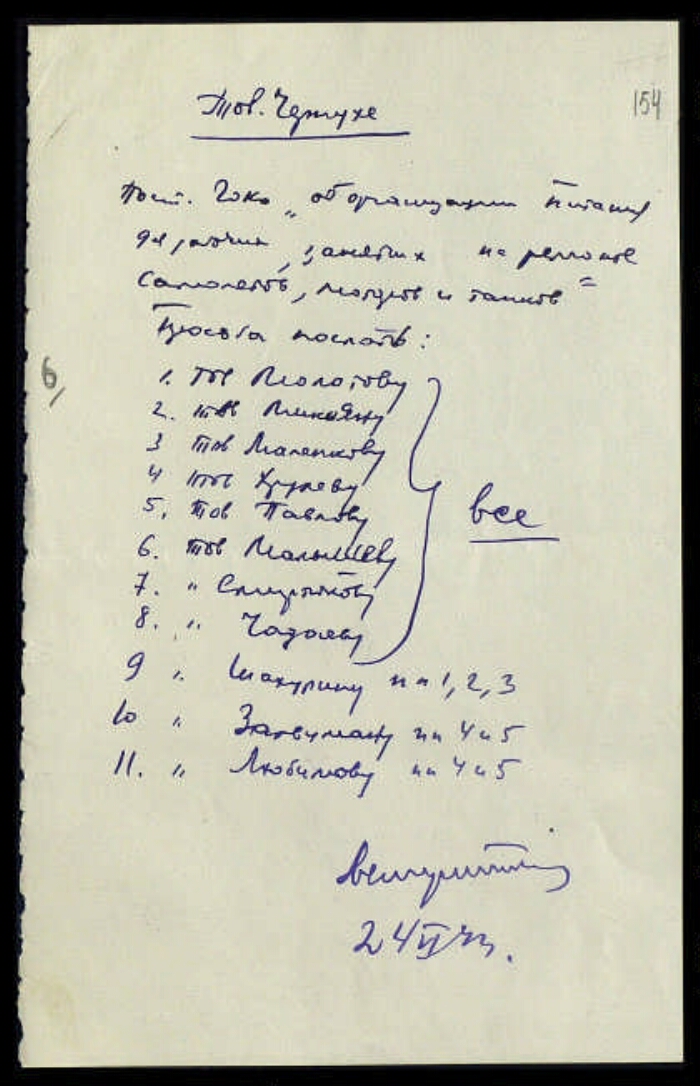 154
Тов. Чернухе
Пост. ГОКО „об организации питания
для рабочих, занятых на ремонте
самолетов, моторов и танков"
Просьба послать:
6,
1. Тов Молотову
2. тов Микояну
3 тов Маленкову
4 тов Хрулеву
5. тов Павлову
6. тов Малышеву
7. " Смиртюкову
8. " Чадаеву
все
9 " Шахурину пп 1, 2, 3
10 " Залесману пп 4 и 5
11. " Любимову пп 4 и 5
24 VI 43.